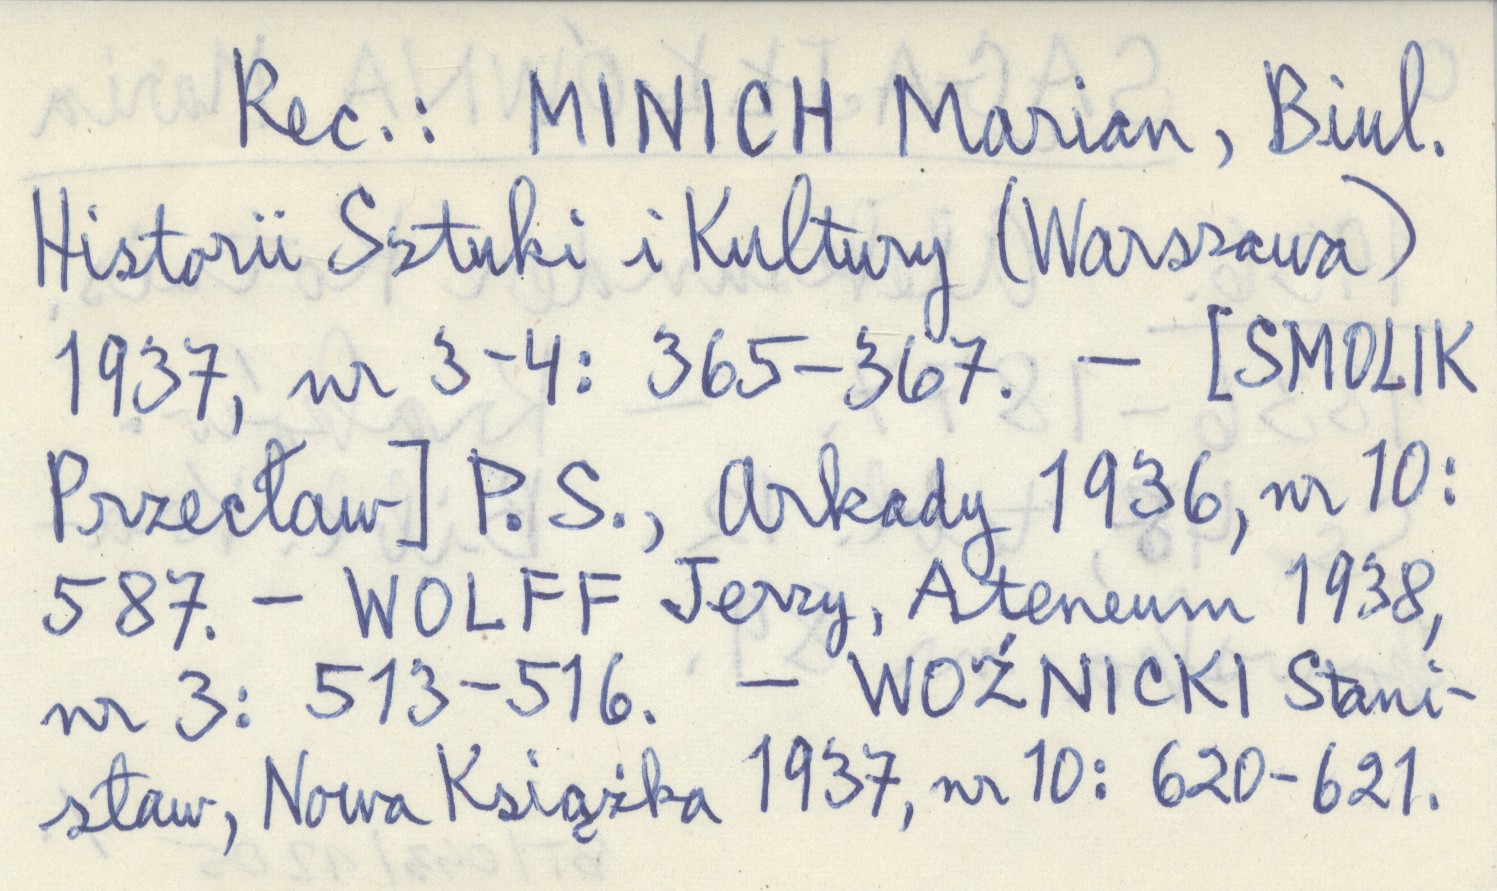 Rec.: MINICH Marian, Biul.
Historii Sztuki i Kultury (Warszawa)
1937, nr 3-4: 365-367. — [SMOLIK
Przecław] P.S., Arkady 1936, nr 10:
587. — WOLFF Jerzy, Ateneum 1938,
nr 3: 513-516. — WOŹNICKI Stani-
sław, Nowa Książka 1937, nr 10: 620-621.